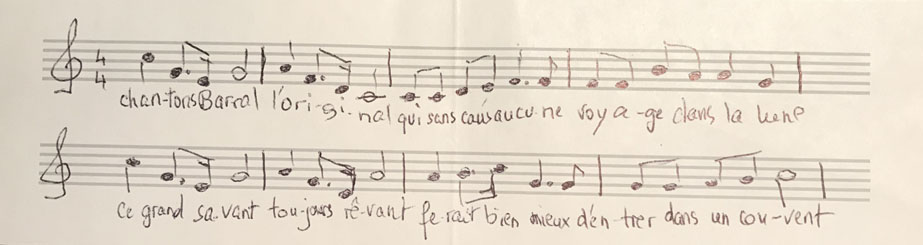 4
4
chan-tons Barral l'ori-gi-nal qui sans caus aucu-ne voya-ge dans la lune
ce grand sa-vant tou-jours rê-vant fe-rait bien mieux d'en-trer dans un cou-vent